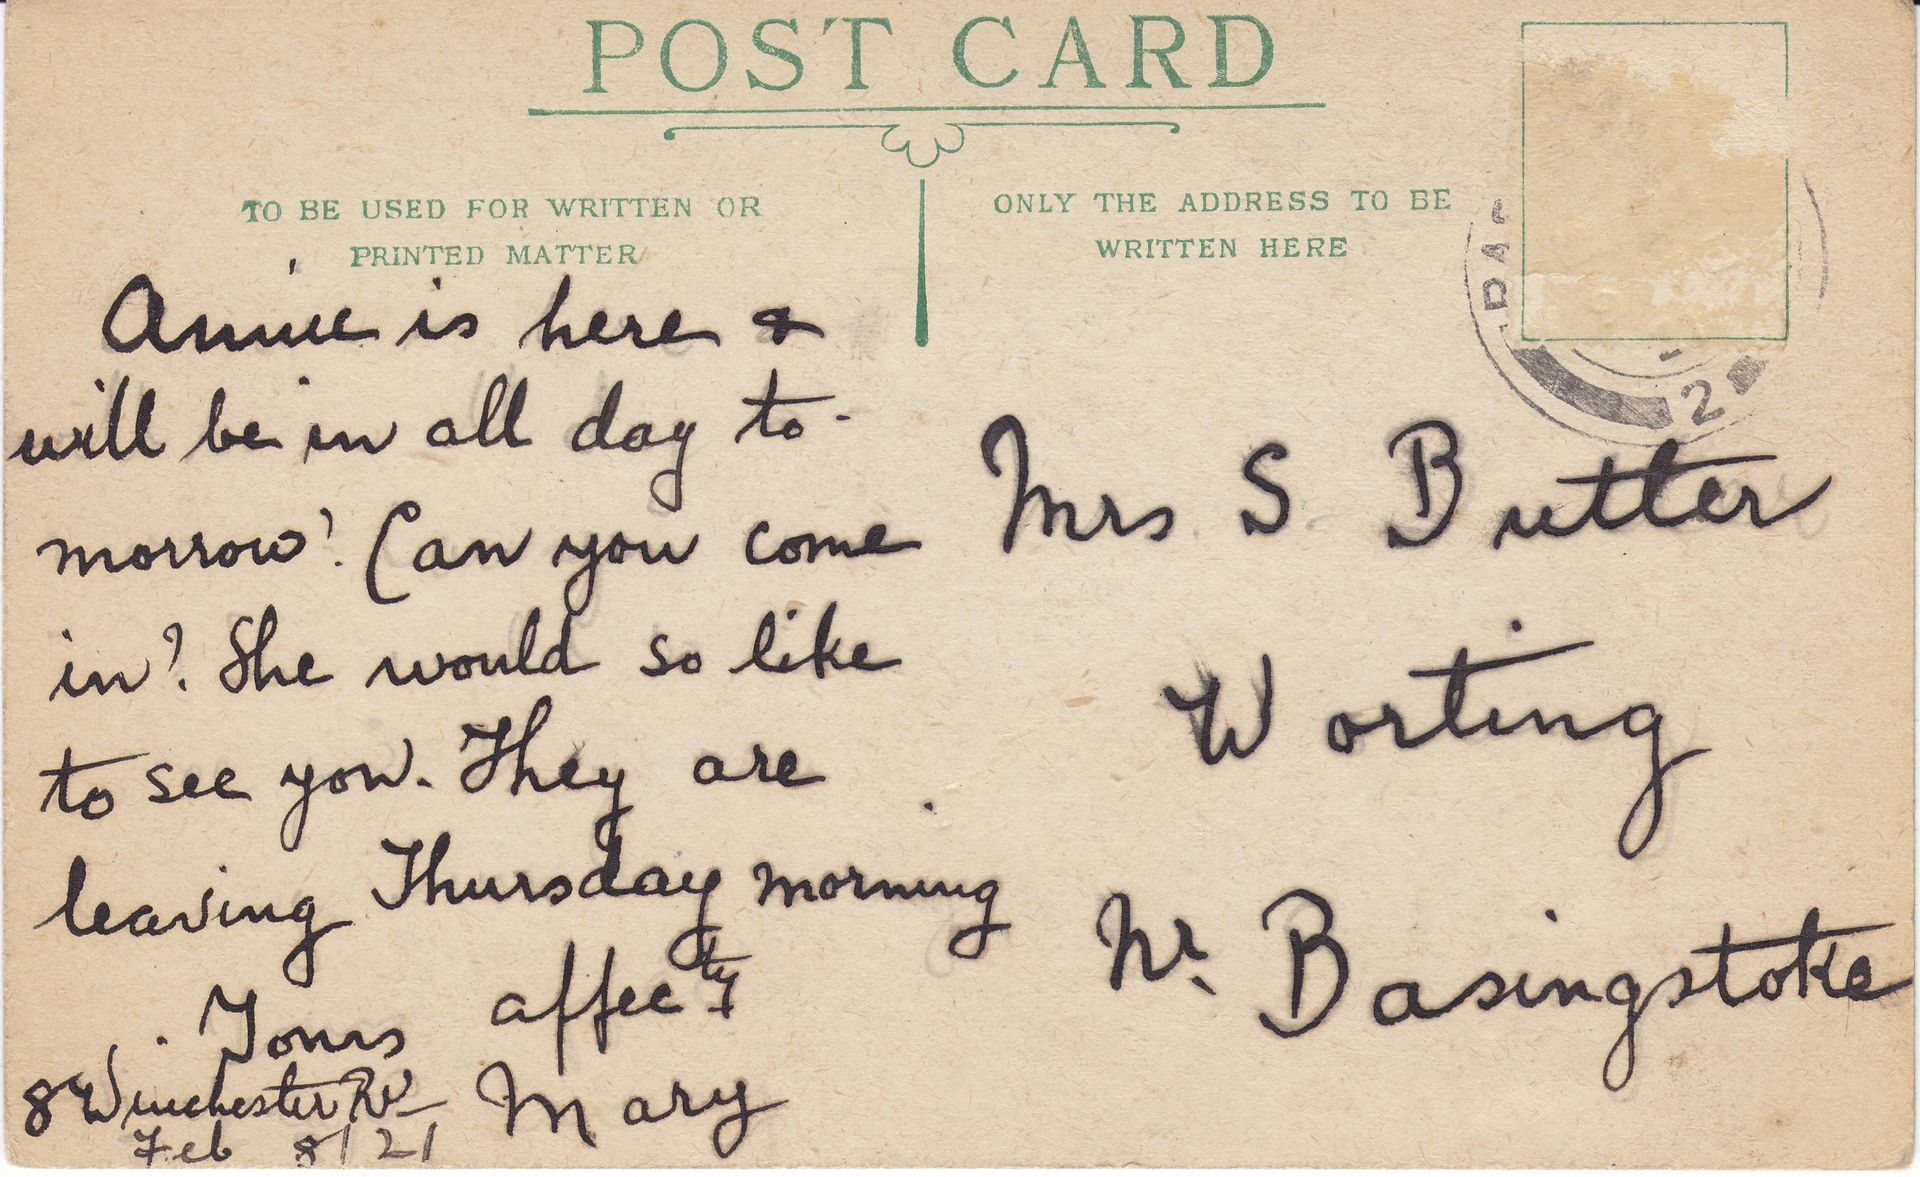 POST CARD
TO BE USED FOR WRITTEN OR
PRINTED MATTER
ONLY THE ADDRESS TO BE
WRITTEN HERE
Annie is here &
will be in all day to-
morrow. Can you come
in? She would so like
to see you. They are
leaving Thursday morning
Yours affectly
Mary
8 Winchester Rd
Feb 8/21
Mrs S Butler
Worting
Nr. Basingstoke
BAS
2